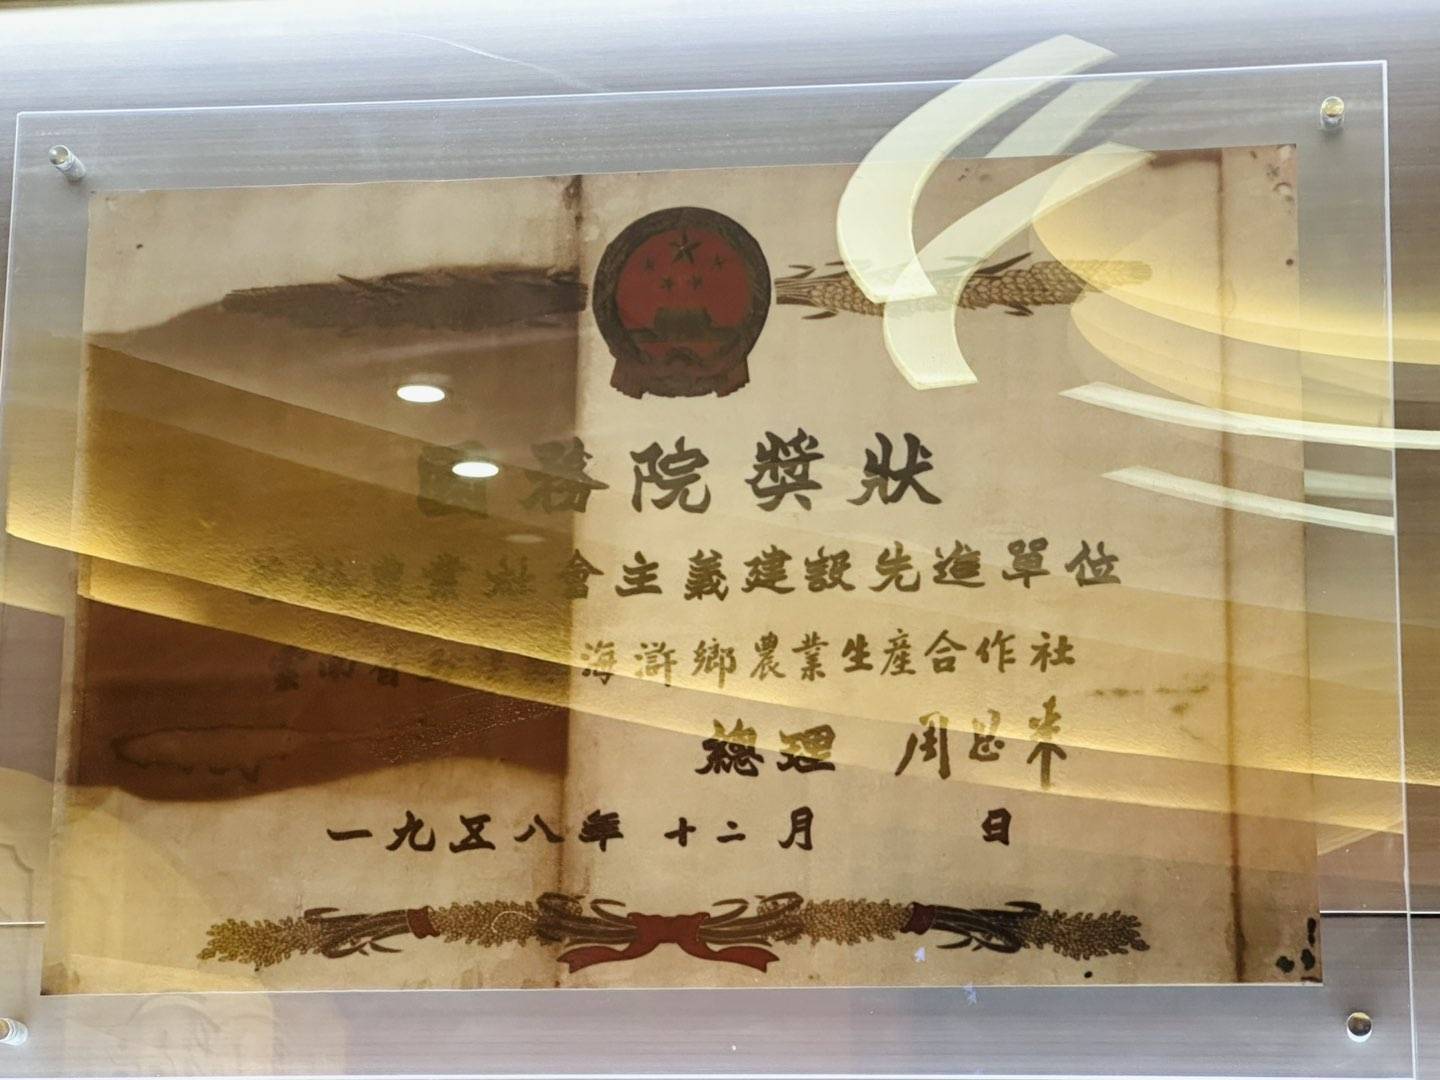 國務院獎狀
獎給農業社會主義建設先進單位
雲南省海滸鄉農業生産合作社
總理 周恩来
一九五八年 十二月 日